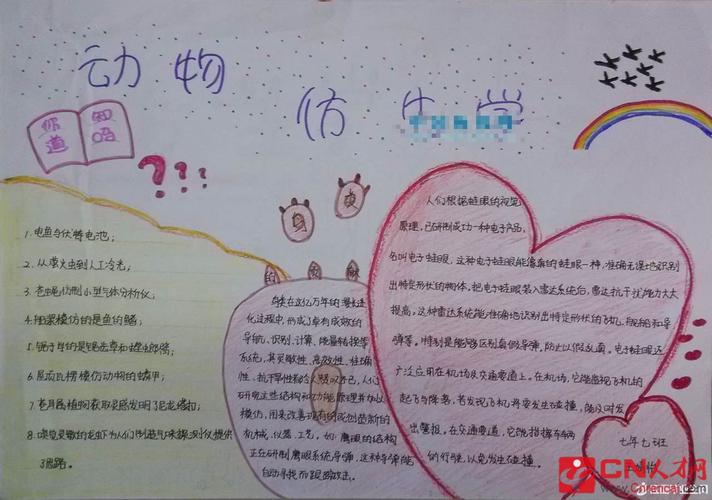 动物
仿生学
你知道吗
1.电鱼与伏特电池;
2.从萤火虫到人工冷光;
3.苍蝇仿制小型气体分析仪;
4.船桨模仿的是鱼的鳍;
5.锯子学的是锯齿草和螳螂臂;
6.屋顶瓦楞模仿动物的鳞甲;
7.苍耳属植物获取灵感发明了尼龙搭扣;
8.嗅觉灵敏的龙虾为人们制造气味探测仪提供
了思路。
身
身体在这亿万年的漫长进
化过程中,形成了卓有成效的
导航、识别、计算、能量转换等
系统,其灵敏性、高效性、准确
性、抗干扰性都令人惊叹不已,人们
研究这些结构和功能原理并加以
模仿,用来改善现有的或创造新的
机械、仪器、工艺,如:鹰眼的结构
正在研制鹰眼系统导弹,这种导弹能
自动寻找而跟踪攻击。
人们根据蛙眼的视觉
原理,已研制成功一种电子产品,
名叫电子蛙眼,这种电子蛙眼能像真的蛙眼一样,准确无误地识别
出特定形状的物体。把电子蛙眼装入雷达系统后,雷达抗干扰能力大大
提高。这种雷达系统能准确地识别出特定形状的飞机、舰船和导
弹等。特别是能够区别真假导弹,防止以假乱真。电子蛙眼还
广泛应用在机场及交通要道上。在机场,它能监视飞机的
起飞与降落,若发现飞机将要发生碰撞,能及时发
出警报。在交通要道,它能指挥车辆
的行驶,以免发生碰撞。
七年七班
CN人才网
cnrencai.com